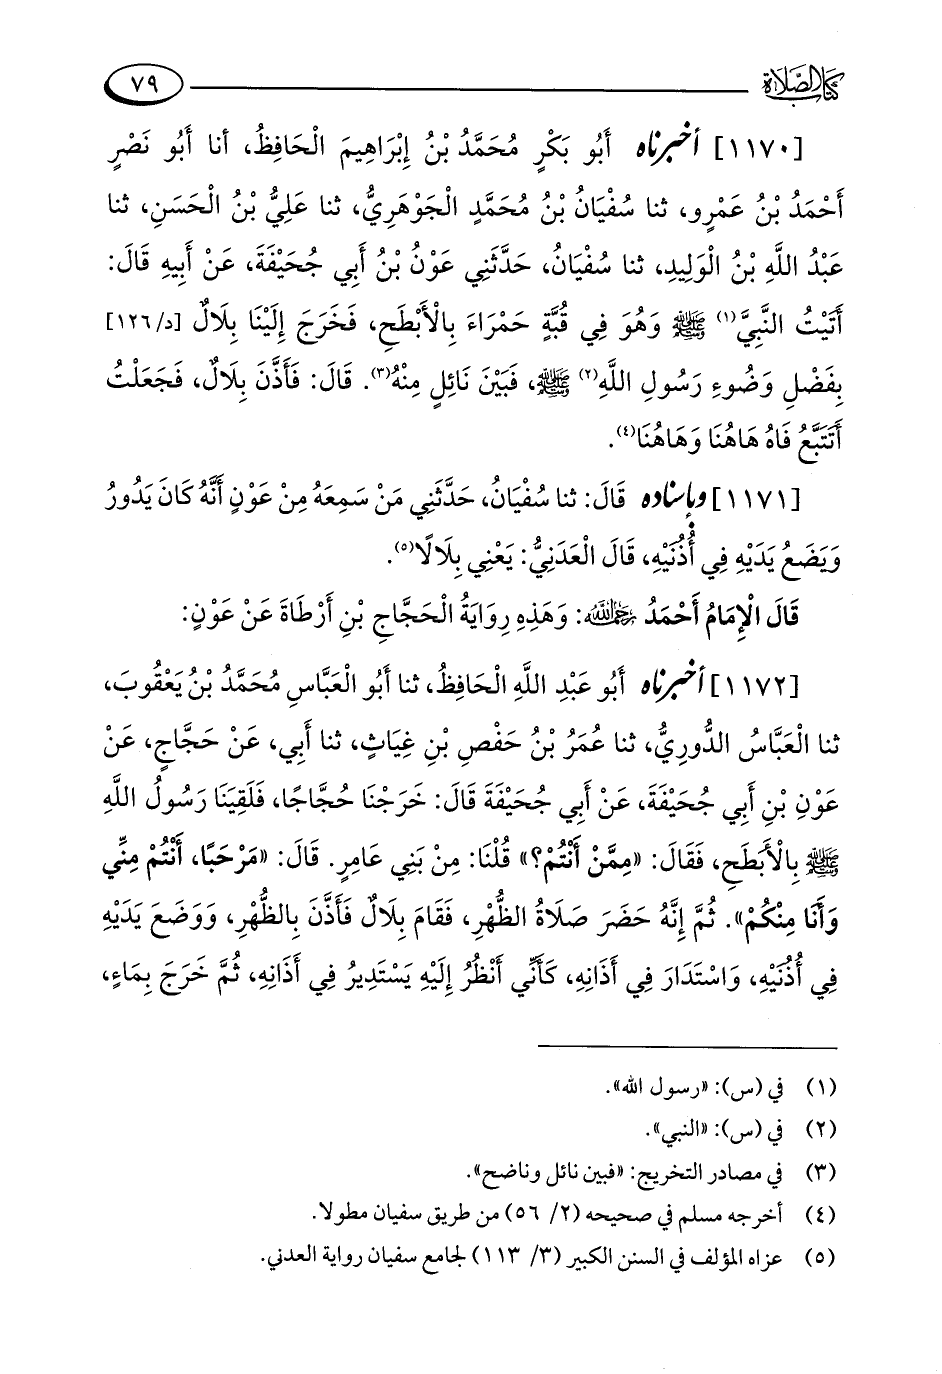 كتاب الصلاة ٧٩
[١١٧٠] أخبرناه أَبُو بَكْرٍ مُحَمَّدُ بْنُ إِبْرَاهِيمَ الْحَافِظُ، أنا أَبُو نَصْرٍ
أَحْمَدُ بْنُ عَمْرٍو، ثنا سُفْيَانُ بْنُ مُحَمَّدٍ الْجَوْهَرِيُّ، ثنا عَلِيُّ بْنُ الْحَسَنِ، ثنا
عَبْدُ اللَّهِ بْنُ الْوَلِيدِ، ثنا سُفْيَانُ، حَدَّثَنِي عَوْنُ بْنُ أَبِي جُحَيْفَةَ، عَنْ أَبِيهِ قَالَ:
أَتَيْتُ النَّبِيَّ(١) ﷺ وَهُوَ فِي قُبَّةٍ حَمْرَاءَ بِالْأَبْطَحِ، فَخَرَجَ إِلَيْنَا بِلَالٌ [د/١٢٦]
بِفَضْلِ وَضُوءِ رَسُولِ اللَّهِ(٢) ﷺ، فَبَيْنَ نَائِلٍ مِنْهُ(٣). قَالَ: فَأَذَّنَ بِلَالٌ، فَجَعَلْتُ
أَتَتَبَّعُ فَاهُ هَاهُنَا وَهَاهُنَا(٤).
[١١٧١] وبإسناده قَالَ: ثنا سُفْيَانُ، حَدَّثَنِي مَنْ سَمِعَهُ مِنْ عَوْنٍ أَنَّهُ كَانَ يَدُورُ
وَيَضَعُ يَدَيْهِ فِي أُذُنَيْهِ، قَالَ الْعَدَنِيُّ: يَعْنِي بِلَالًا(٥).
قَالَ الْإِمَامُ أَحْمَدُ رحمه الله: وَهَذِهِ رِوَايَةُ الْحَجَّاجِ بْنِ أَرْطَاةَ عَنْ عَوْنٍ:
[١١٧٢] أخبرناه أَبُو عَبْدِ اللَّهِ الْحَافِظُ، ثنا أَبُو الْعَبَّاسِ مُحَمَّدُ بْنُ يَعْقُوبَ،
ثنا الْعَبَّاسُ الدُّورِيُّ، ثنا عُمَرُ بْنُ حَفْصِ بْنِ غِيَاثٍ، ثنا أَبِي، عَنْ حَجَّاجٍ، عَنْ
عَوْنِ بْنِ أَبِي جُحَيْفَةَ، عَنْ أَبِي جُحَيْفَةَ قَالَ: خَرَجْنَا حُجَّاجًا، فَلَقِيَنَا رَسُولُ اللَّهِ
ﷺ بِالْأَبْطَحِ، فَقَالَ: «مِمَّنْ أَنْتُمْ؟» قُلْنَا: مِنْ بَنِي عَامِرٍ. قَالَ: «مَرْحَبًا، أَنْتُمْ مِنِّي
وَأَنَا مِنْكُمْ». ثُمَّ إِنَّهُ حَضَرَ صَلَاةُ الظُّهْرِ، فَقَامَ بِلَالٌ فَأَذَّنَ بِالظُّهْرِ، وَوَضَعَ يَدَيْهِ
فِي أُذُنَيْهِ، وَاسْتَدَارَ فِي أَذَانِهِ، كَأَنِّي أَنْظُرُ إِلَيْهِ يَسْتَدِيرُ فِي أَذَانِهِ، ثُمَّ خَرَجَ بِمَاءٍ،
(١) في (س): «رسول الله».
(٢) في (س): «النبي».
(٣) في مصادر التخريج: «فبين نائل وناضح».
(٤) أخرجه مسلم في صحيحه (٢/ ٥٦) من طريق سفيان مطولا.
(٥) عزاه المؤلف في السنن الكبير (٣/ ١١٣) لجامع سفيان رواية العدني.